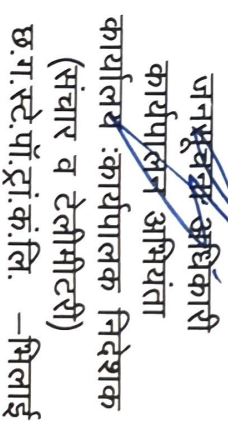 जनसूचना अधिकारी
कार्यपालन अभियंता
कार्यालय :कार्यपालक निदेशक
(संचार व टेलीमीटरी)
छ.ग.स्टे.पॉ.ट्रां.कं.लि. –भिलाई